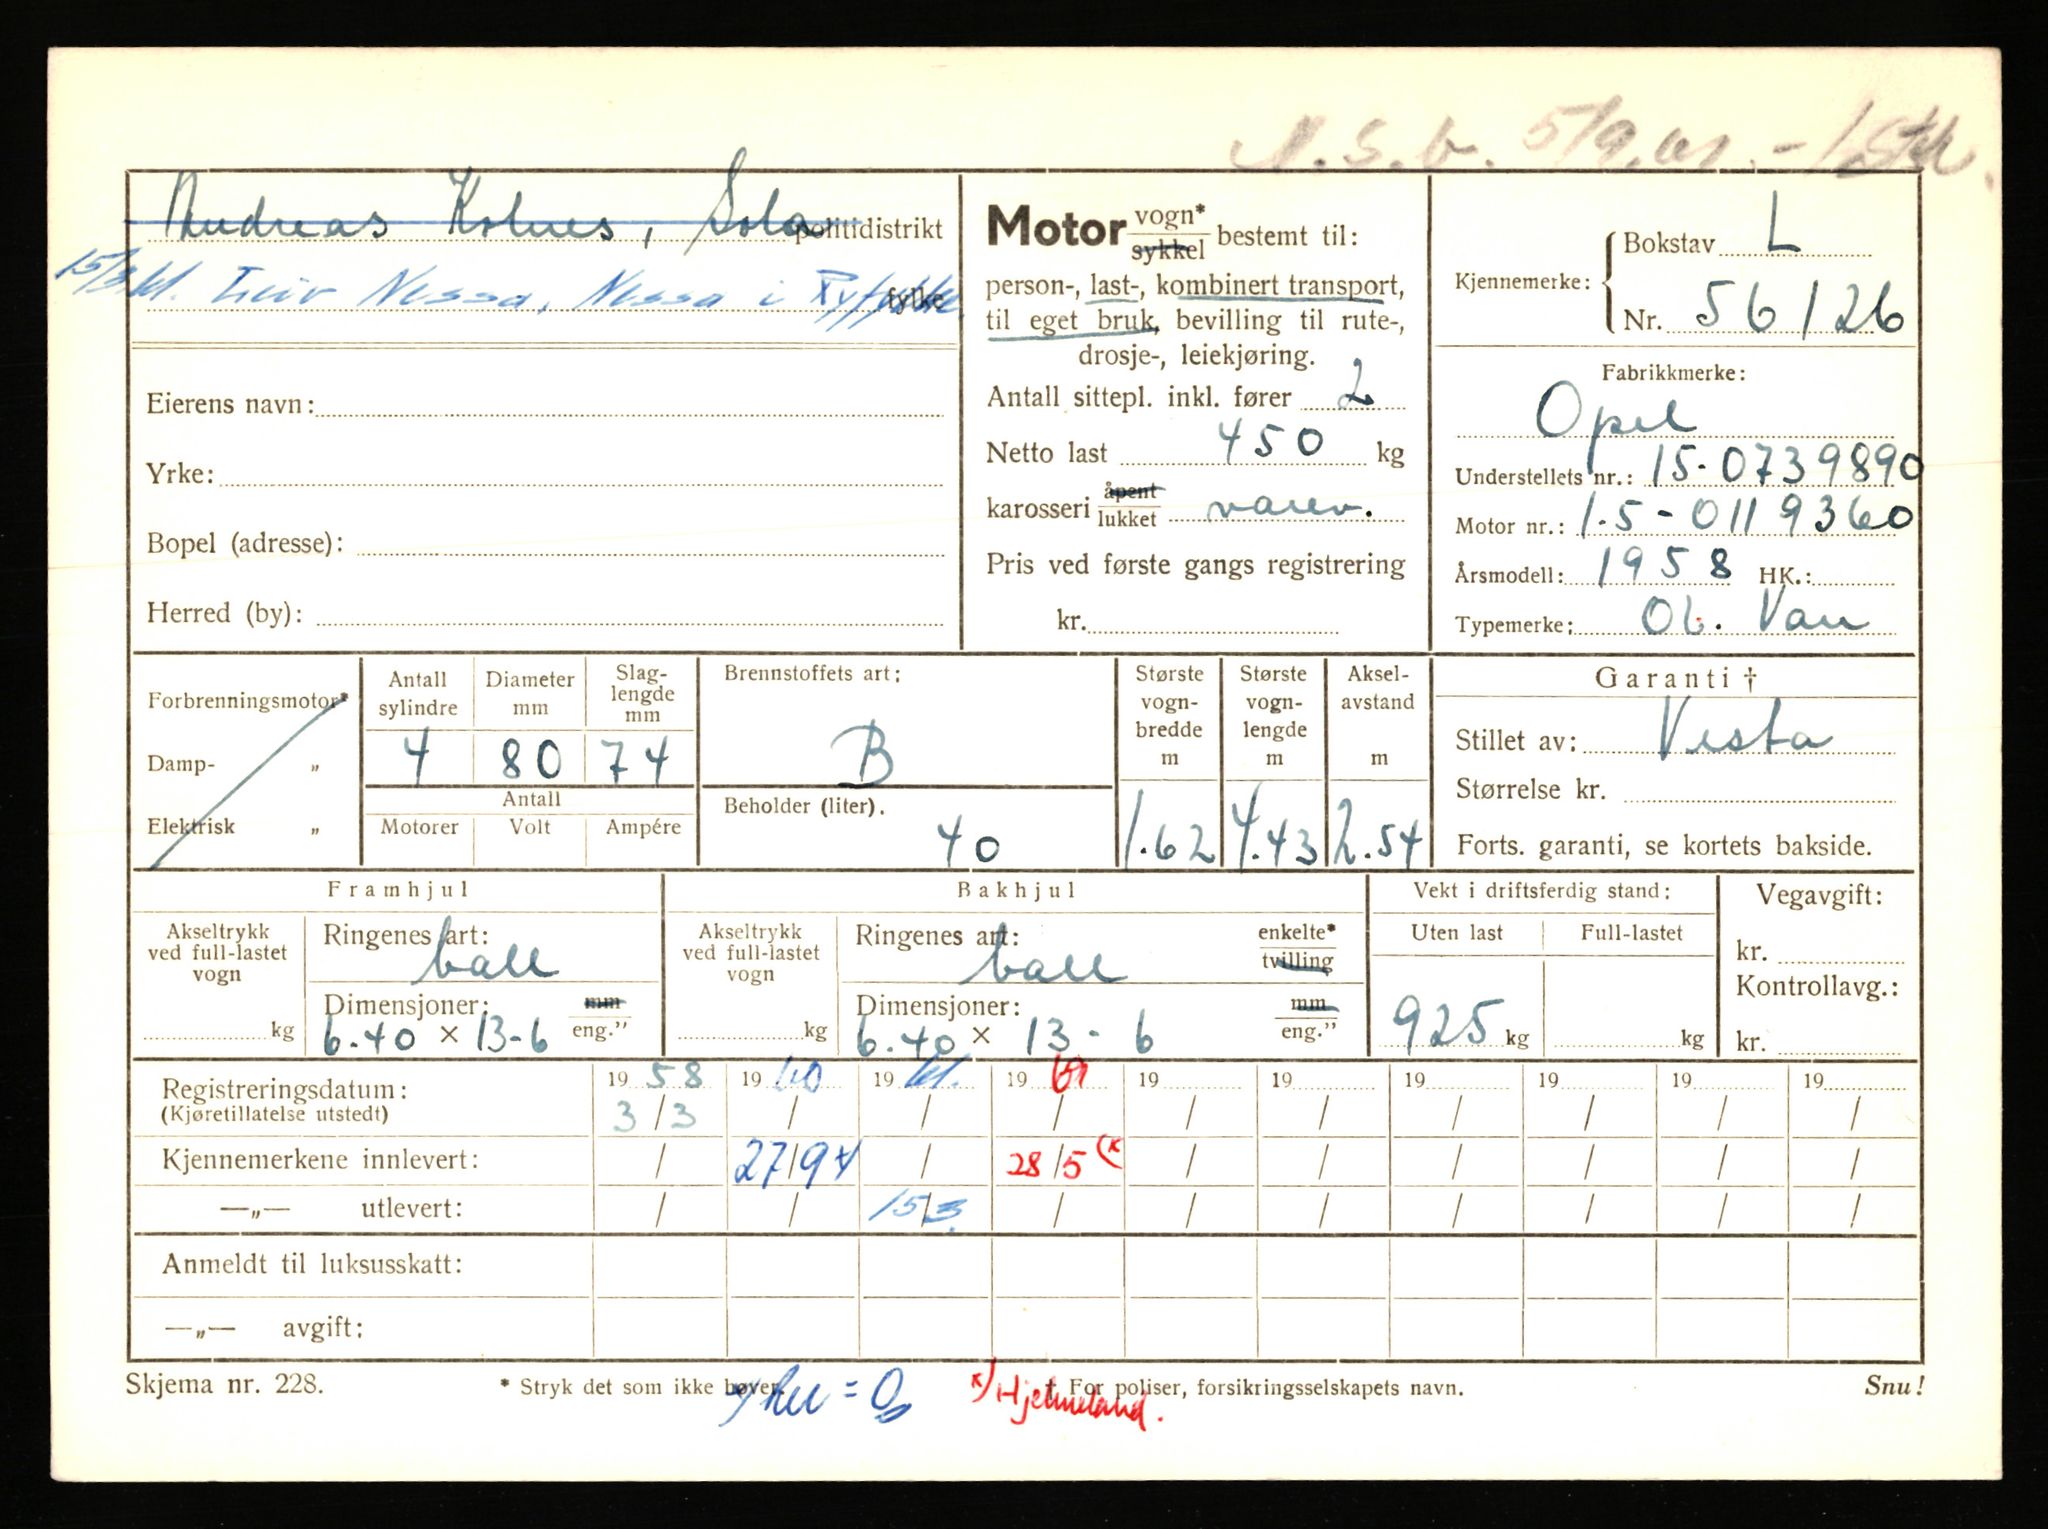 N.S.b. 5/9.61. - 1 Stk.
Andreas Kolnes, Sola politidistrikt
15/3.61. Leiv Nessa, Nessa i Ryfylke fylke
Eierens navn:
Yrke:
Bopel (adresse):
Herred (by):
Motor vogn* sykkel bestemt til:
person-, last-, kombinert transport,
til eget bruk, bevilling til rute-,
drosje-, leiekjøring.
Antall sittepl. inkl. fører 2
Netto last 450 kg
karosseri åpent lukket varev.
Pris ved første gangs registrering
kr.
Kjennemerke: Bokstav L
Nr. 56126
Fabrikkmerke:
Opel
Understellets nr.: 15-0739890
Motor nr.: 1.5-0119360
Årsmodell: 1958 HK.:
Typemerke: Ol. Van
Forbrenningsmotor*
Damp- „
Elektrisk „
Antall sylindre 4
Diameter mm 80
Slag-lengde mm 74
Antall
Motorer Volt Ampére
Brennstoffets art:
B
Beholder (liter).
40
Største vogn-bredde m 1.62
Største vogn-lengde m 4.43
Aksel-avstand m 2.54
Garanti †
Stillet av: Vesta
Størrelse kr.
Forts. garanti, se kortets bakside.
Framhjul
Akseltrykk ved full-lastet vogn
kg
Ringenes art:
ball
Dimensjoner: mm
6.40 x 13-6 eng."
Bakhjul
Akseltrykk ved full-lastet vogn
kg
Ringenes art: enkelte* tvilling
ball
Dimensjoner: mm
6.40 x 13-6 eng."
Vekt i driftsferdig stand:
Uten last Full-lastet
925 kg kg
Vegavgift:
kr.
Kontrollavg.:
kr.
Registreringsdatum: 19 58 19 60 19 61. 19 61 19 19 19 19 19 19
(Kjøretillatelse utstedt) 3/3 / / / / / / / / /
Kjennemerkene innlevert: / 27/9 x) / 28/5 (x / / / / / /
—„— utlevert: / / 15/3. / / / / / / /
Anmeldt til luksusskatt:
—„— avgift:
Skjema nr. 228.
* Stryk det som ikke høver.
† For poliser, forsikringsselskapets navn.
Snu!
x) Hjelmeland.